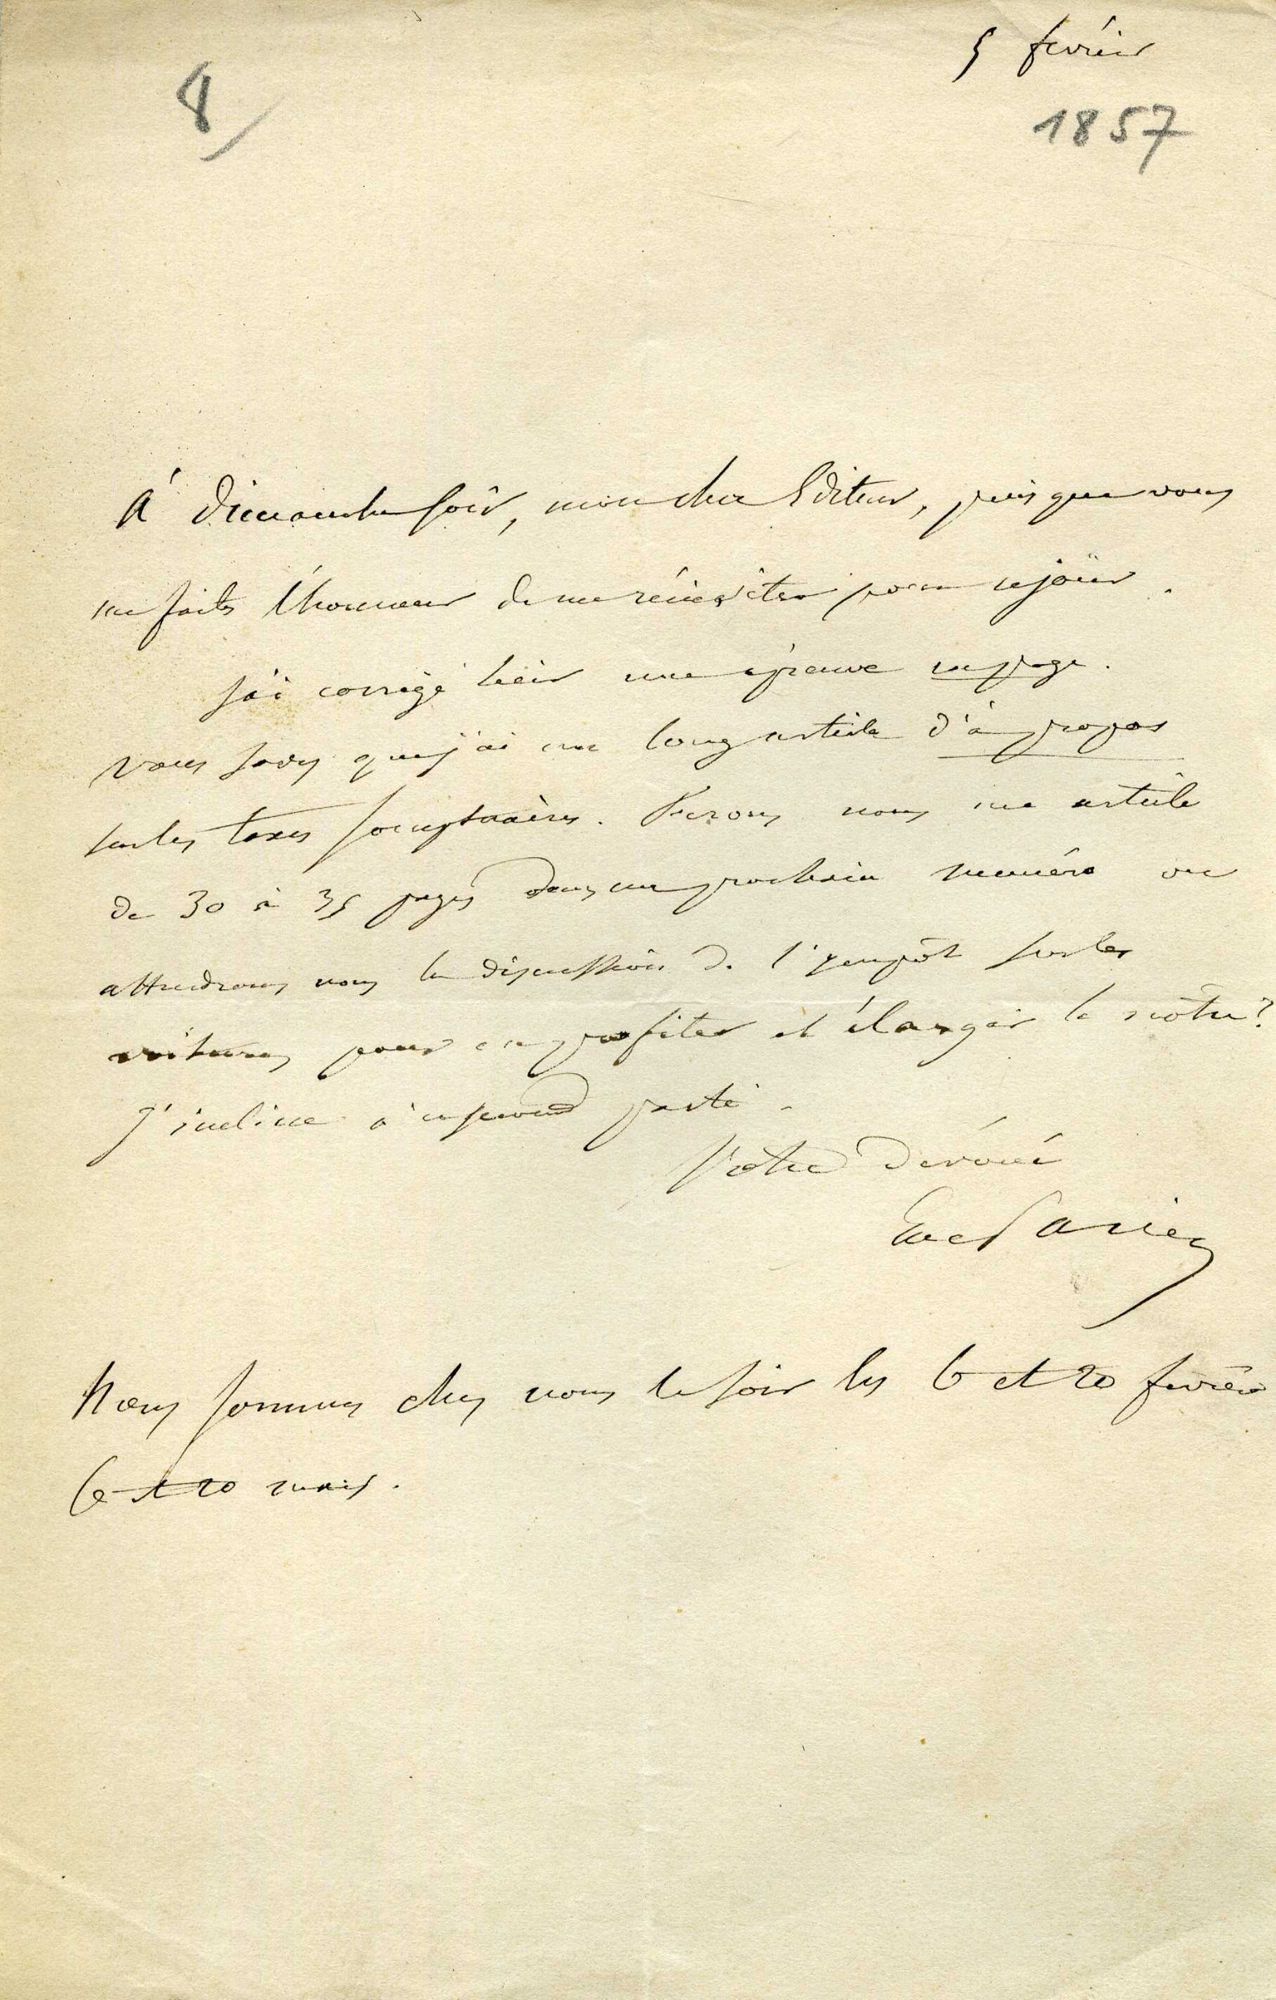 5 février
8/
1857
À dimanche soir, mon cher Editeur, puisque vous
me faites l'honneur de me réinviter pour ce jour.
J'ai corrigé hier une épreuve en page.
Vous savez que j'ai un long article d'à propos
sur les taxes somptuaires. Ferons nous un article
de 30 à 35 pages dans un prochain numéro ou
attendrons nous la discussion de l'impôt sur les
voitures pour en profiter et élargir le nôtre?
J'incline à ce second parti.
Votre dévoué
E de Parieu
Nous sommes chez nous le soir les 6 et 20 février
6 et 20 mars.